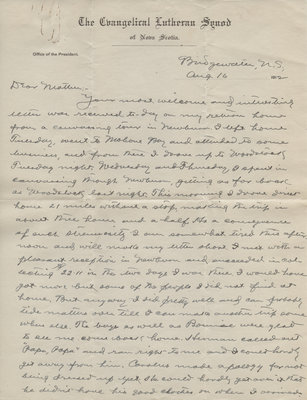 The Evangelical Lutheran Synod
of Nova Scotia.
Office of the President.
Bridgewater, N.S.
Aug 16
Dear Mother:
Your most welcome and interesting
letter was received to-day on my return home
from a canvassing tour in Newburn. I left home
Tuesday, went to Mahone Bay and attended to some
business, and from there I drove up to Woodstock
Tuesday night. Wednesday and Thursday I spent in
canvassing through Newburn, getting as far back
as Woodstock last night. This morning I drove direct
home 21 miles without a stop, making the trip in
about three hours and a half. As a consequence
of such strenuosity I am somewhat tired this after-
noon and will make my letter short. I met with a
pleasant reception in Newburn and succeeded in col-
lecting 2211 in the two days I was there. I would have
got more but some of the people I did not find at
home. But anyway I did pretty well and can probably
tide matters over till I can make another trip some
where else. The boys as well as were glad
to see me come home. Herman called out
"Papa, Papa" and ran right to me and I could hardly
get away from him. made apology for not
being dressed up yet. She could hardly get over it that
he didn't have his good clothes on when I arrived